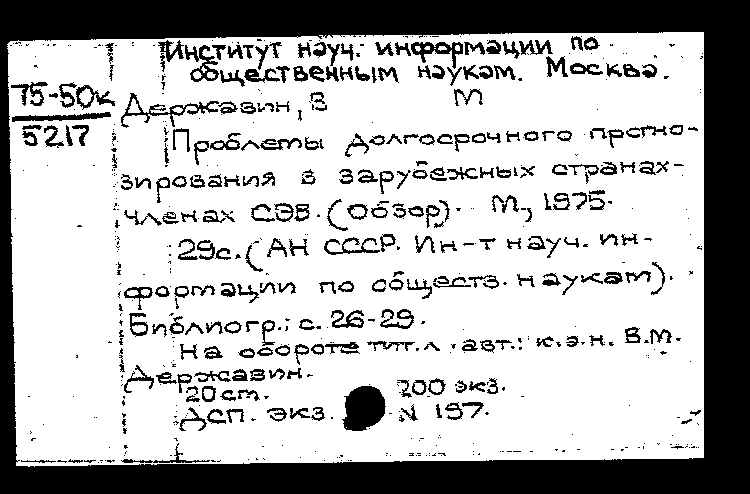 Институт науч. информации по
общественным наукам. Москва.
75-50к
5217
Державин, В М
Проблемы долгосрочного прогно-
зирования в зарубежных странах-
членах СЭВ. (Обзор). М., 1975.
29с. (АН СССР. Ин-т науч. ин-
формации по обществ. наукам).
Библиогр.: с. 26-29.
На обороте тит. л. авт.: к.э.н. В.М.
Державин.
20 cm. 200 экз.
ДСП. экз. N 197.